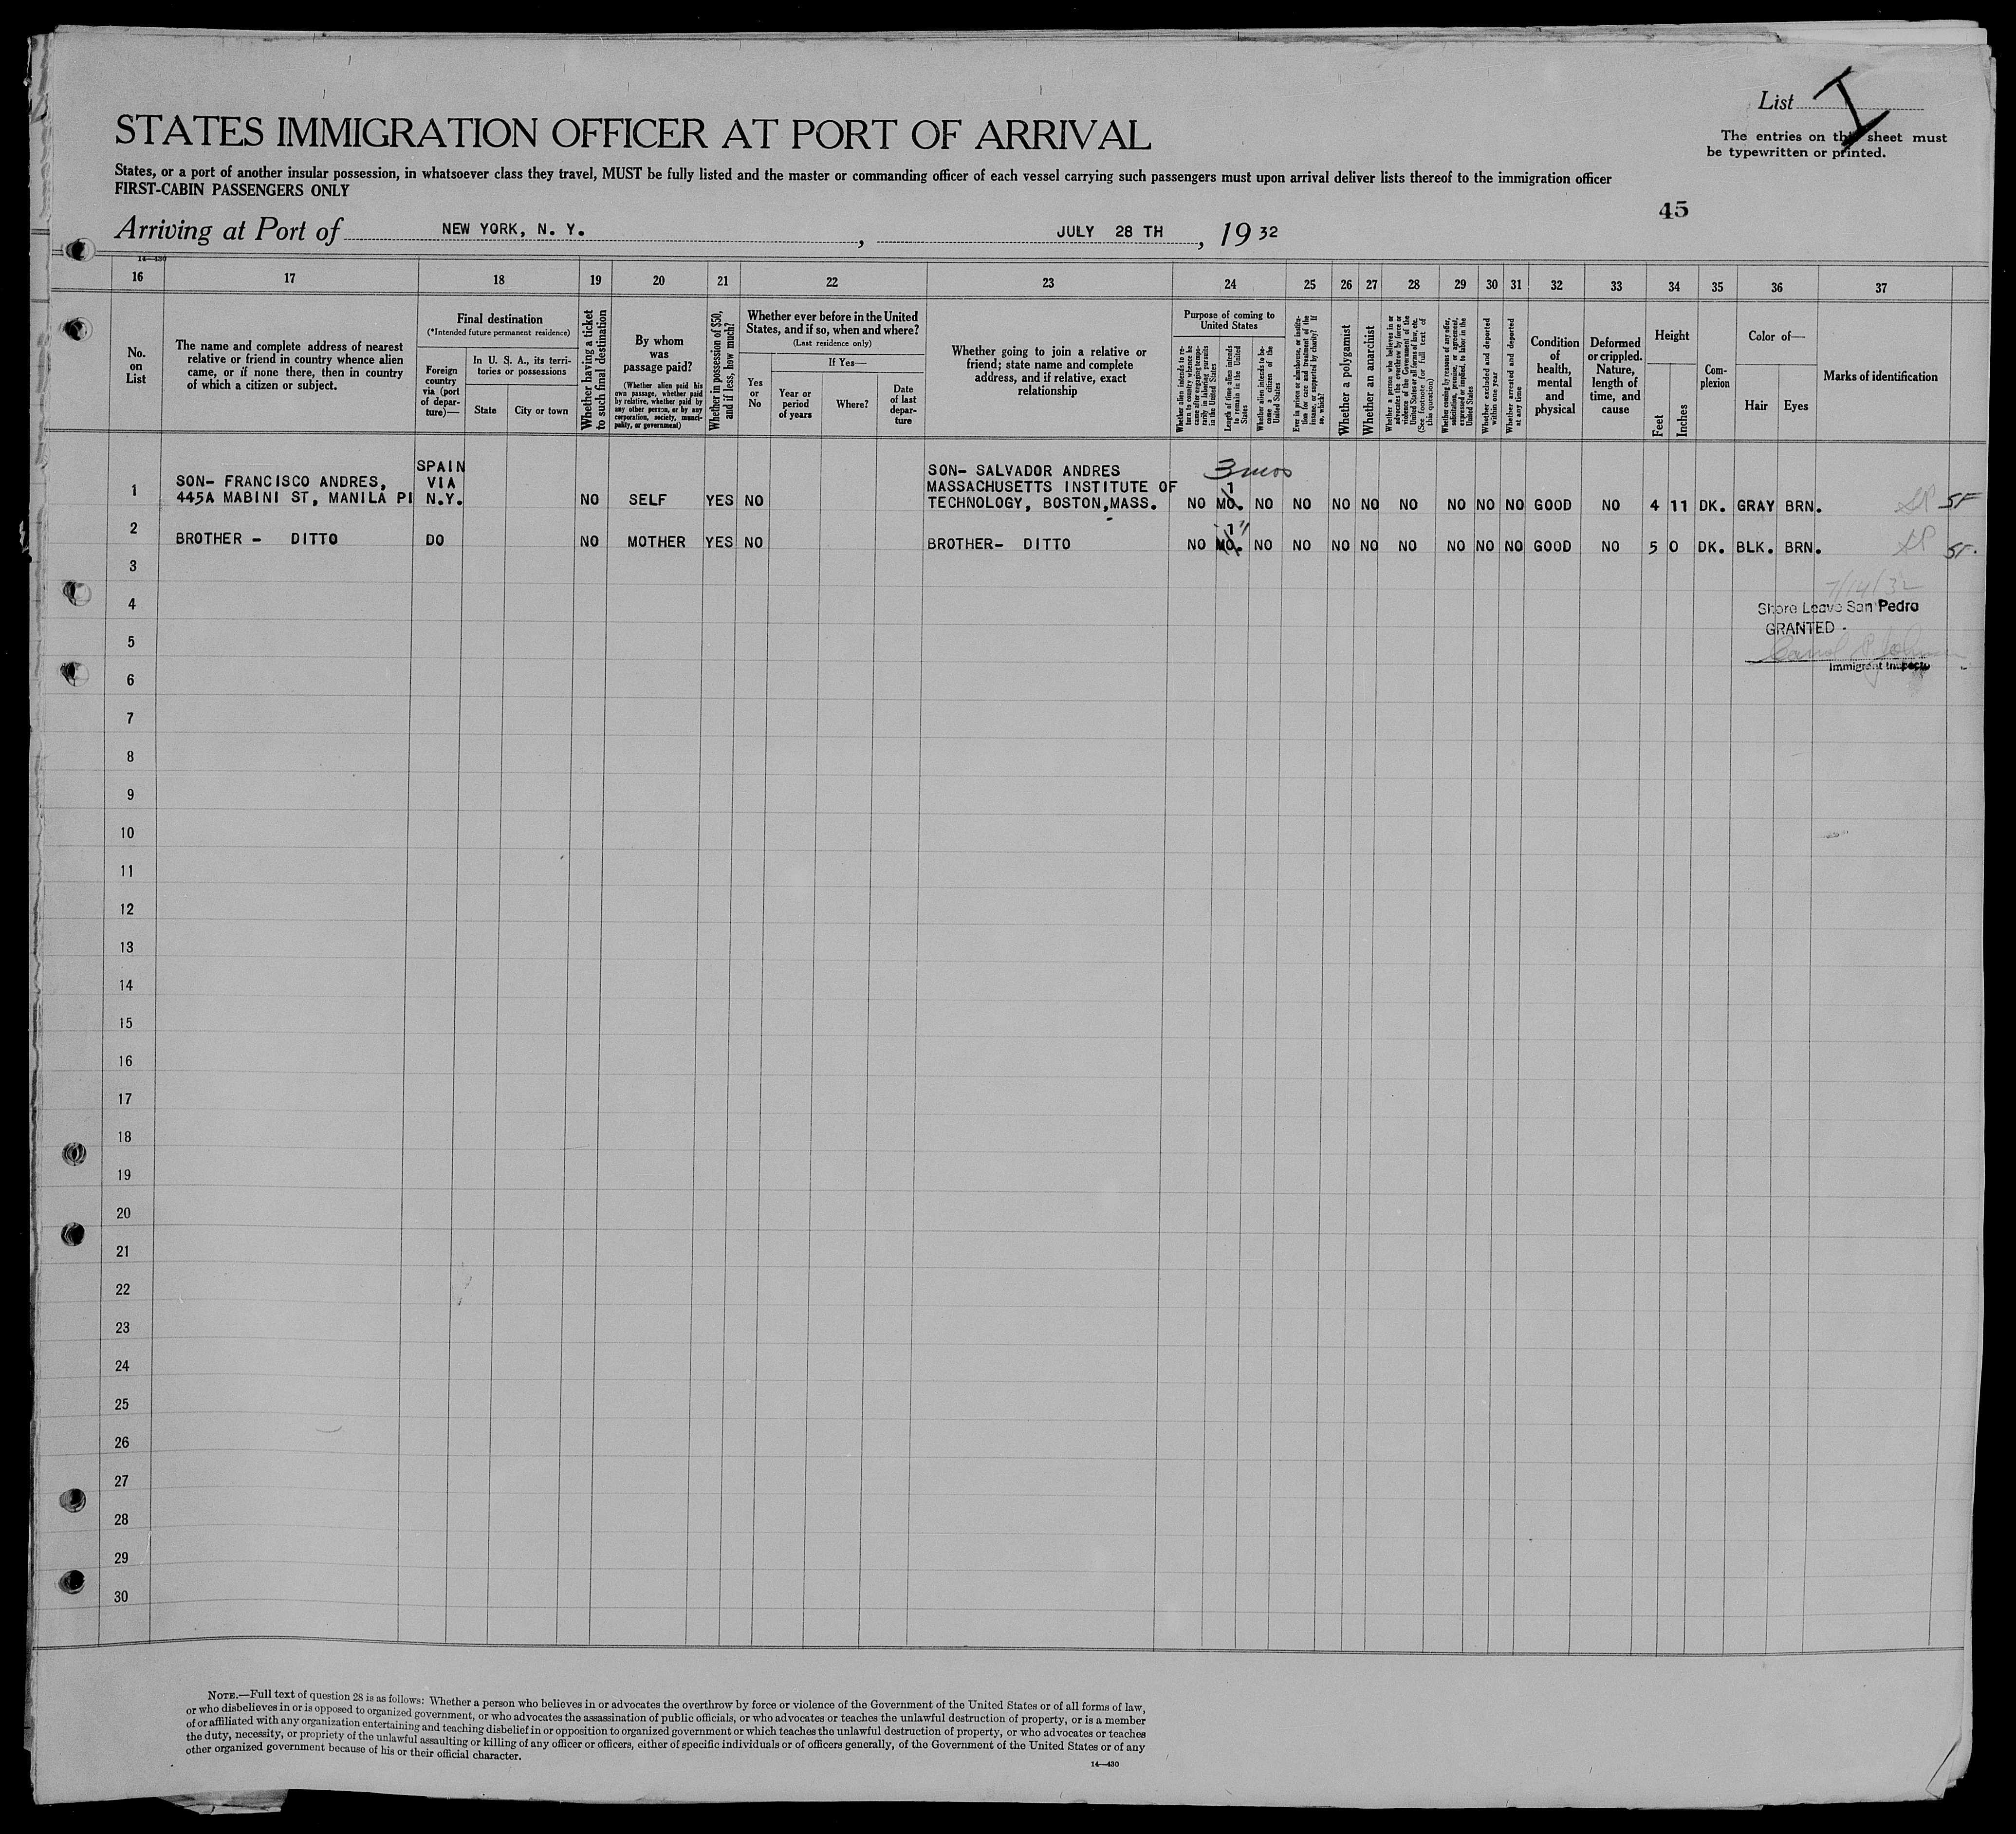 List I
STATES IMMIGRATION OFFICER AT PORT OF ARRIVAL
The entries on this sheet must
be typewritten or printed.
States, or a port of another insular possession, in whatsoever class they travel, MUST be fully listed and the master or commanding officer of each vessel carrying such passengers must upon arrival deliver lists thereof to the immigration officer
FIRST-CABIN PASSENGERS ONLY
45
Arriving at Port of NEW YORK, N. Y. , JULY 28 TH , 19 32
14—430
16 17 18 19 20 21 22 23 24 25 26 27 28 29 30 31 32 33 34 35 36 37
No.
on
List
The name and complete address of nearest
relative or friend in country whence alien
came, or if none there, then in country
of which a citizen or subject.
Final destination
(*Intended future permanent residence)
Foreign
country
via (port
of depar-
ture)—
In U. S. A., its terri-
tories or possessions
State
City or town
Whether having a ticket
to such final destination
By whom
was
passage paid?
(Whether alien paid his
own passage, whether paid
by relative, whether paid by
any other person, or by any
corporation, society, munici-
pality, or government)
Whether in possession of $50,
and if less, how much?
Whether ever before in the United
States, and if so, when and where?
(Last residence only)
Yes
or
No
If Yes—
Year or
period
of years
Where?
Date
of last
depar-
ture
Whether going to join a relative or
friend; state name and complete
address, and if relative, exact
relationship
Purpose of coming to
United States
Whether alien intends to re-
turn to country whence he
came after engaging tempo-
rarily in laboring pursuits
in the United States
Length of time alien intends
to remain in the United
States
Whether alien intends to be-
come a citizen of the
United States
Ever in prison or almshouse, or institu-
tion for care and treatment of the
insane, or supported by charity? If
so, which?
Whether a polygamist
Whether an anarchist
Whether a person who believes in or
advocates the overthrow by force or
violence of the Government of the
United States or all forms of law, etc.
(See footnote for full text of
this question)
Whether coming by reasons of any offer,
solicitation, promise, or agreement,
expressed or implied, to labor in the
United States
Whether excluded and deported
within one year
Whether arrested and deported
at any time
Condition
of
health,
mental
and
physical
Deformed
or crippled.
Nature,
length of
time, and
cause
Height
Feet
Inches
Com-
plexion
Color of—
Hair
Eyes
Marks of identification
SPAIN
SON- FRANCISCO ANDRES, VIA
1 445A MABINI ST, MANILA PI N.Y. NO SELF YES NO
SON- SALVADOR ANDRES
MASSACHUSETTS INSTITUTE OF
TECHNOLOGY, BOSTON,MASS.
3 mos
1
NO MO. NO NO NO NO NO NO NO NO GOOD NO 4 11 DK. GRAY BRN. SF
2 BROTHER - DITTO DO NO MOTHER YES NO BROTHER- DITTO
1 "
NO MO. NO NO NO NO NO NO NO NO GOOD NO 5 0 DK. BLK. BRN. SF.
3
7/14/32
4
Shore Leave San Pedro
GRANTED -
5
Immigrant Inspector
6
7
8
9
10
11
12
13
14
15
16
17
18
19
20
21
22
23
24
25
26
27
28
29
30
NOTE.—Full text of question 28 is as follows: Whether a person who believes in or advocates the overthrow by force or violence of the Government of the United States or of all forms of law,
or who disbelieves in or is opposed to organized government, or who advocates the assassination of public officials, or who advocates or teaches the unlawful destruction of property, or is a member
of or affiliated with any organization entertaining and teaching disbelief in or opposition to organized government or which teaches the unlawful destruction of property, or who advocates or teaches
the duty, necessity, or propriety of the unlawful assaulting or killing of any officer or officers, either of specific individuals or of officers generally, of the Government of the United States or of any
other organized government because of his or their official character.
14—430